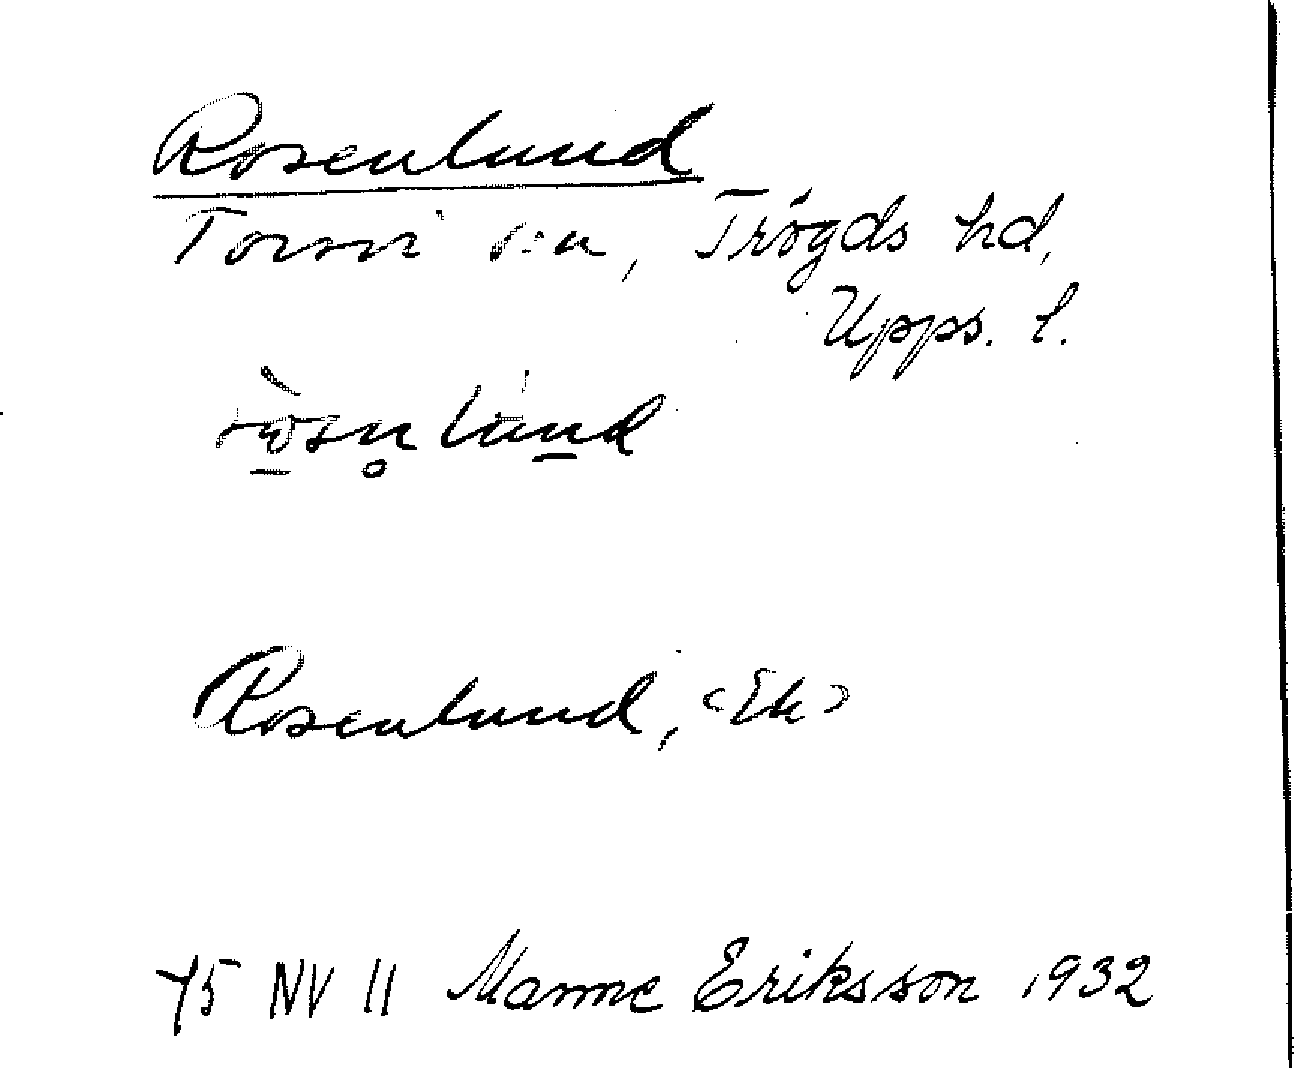 Rosenlund
Torsvi s:n, Trögds hd,
Upps. l.
Rosenlund, <Ek>
75 NV 11 Manne Eriksson 1932